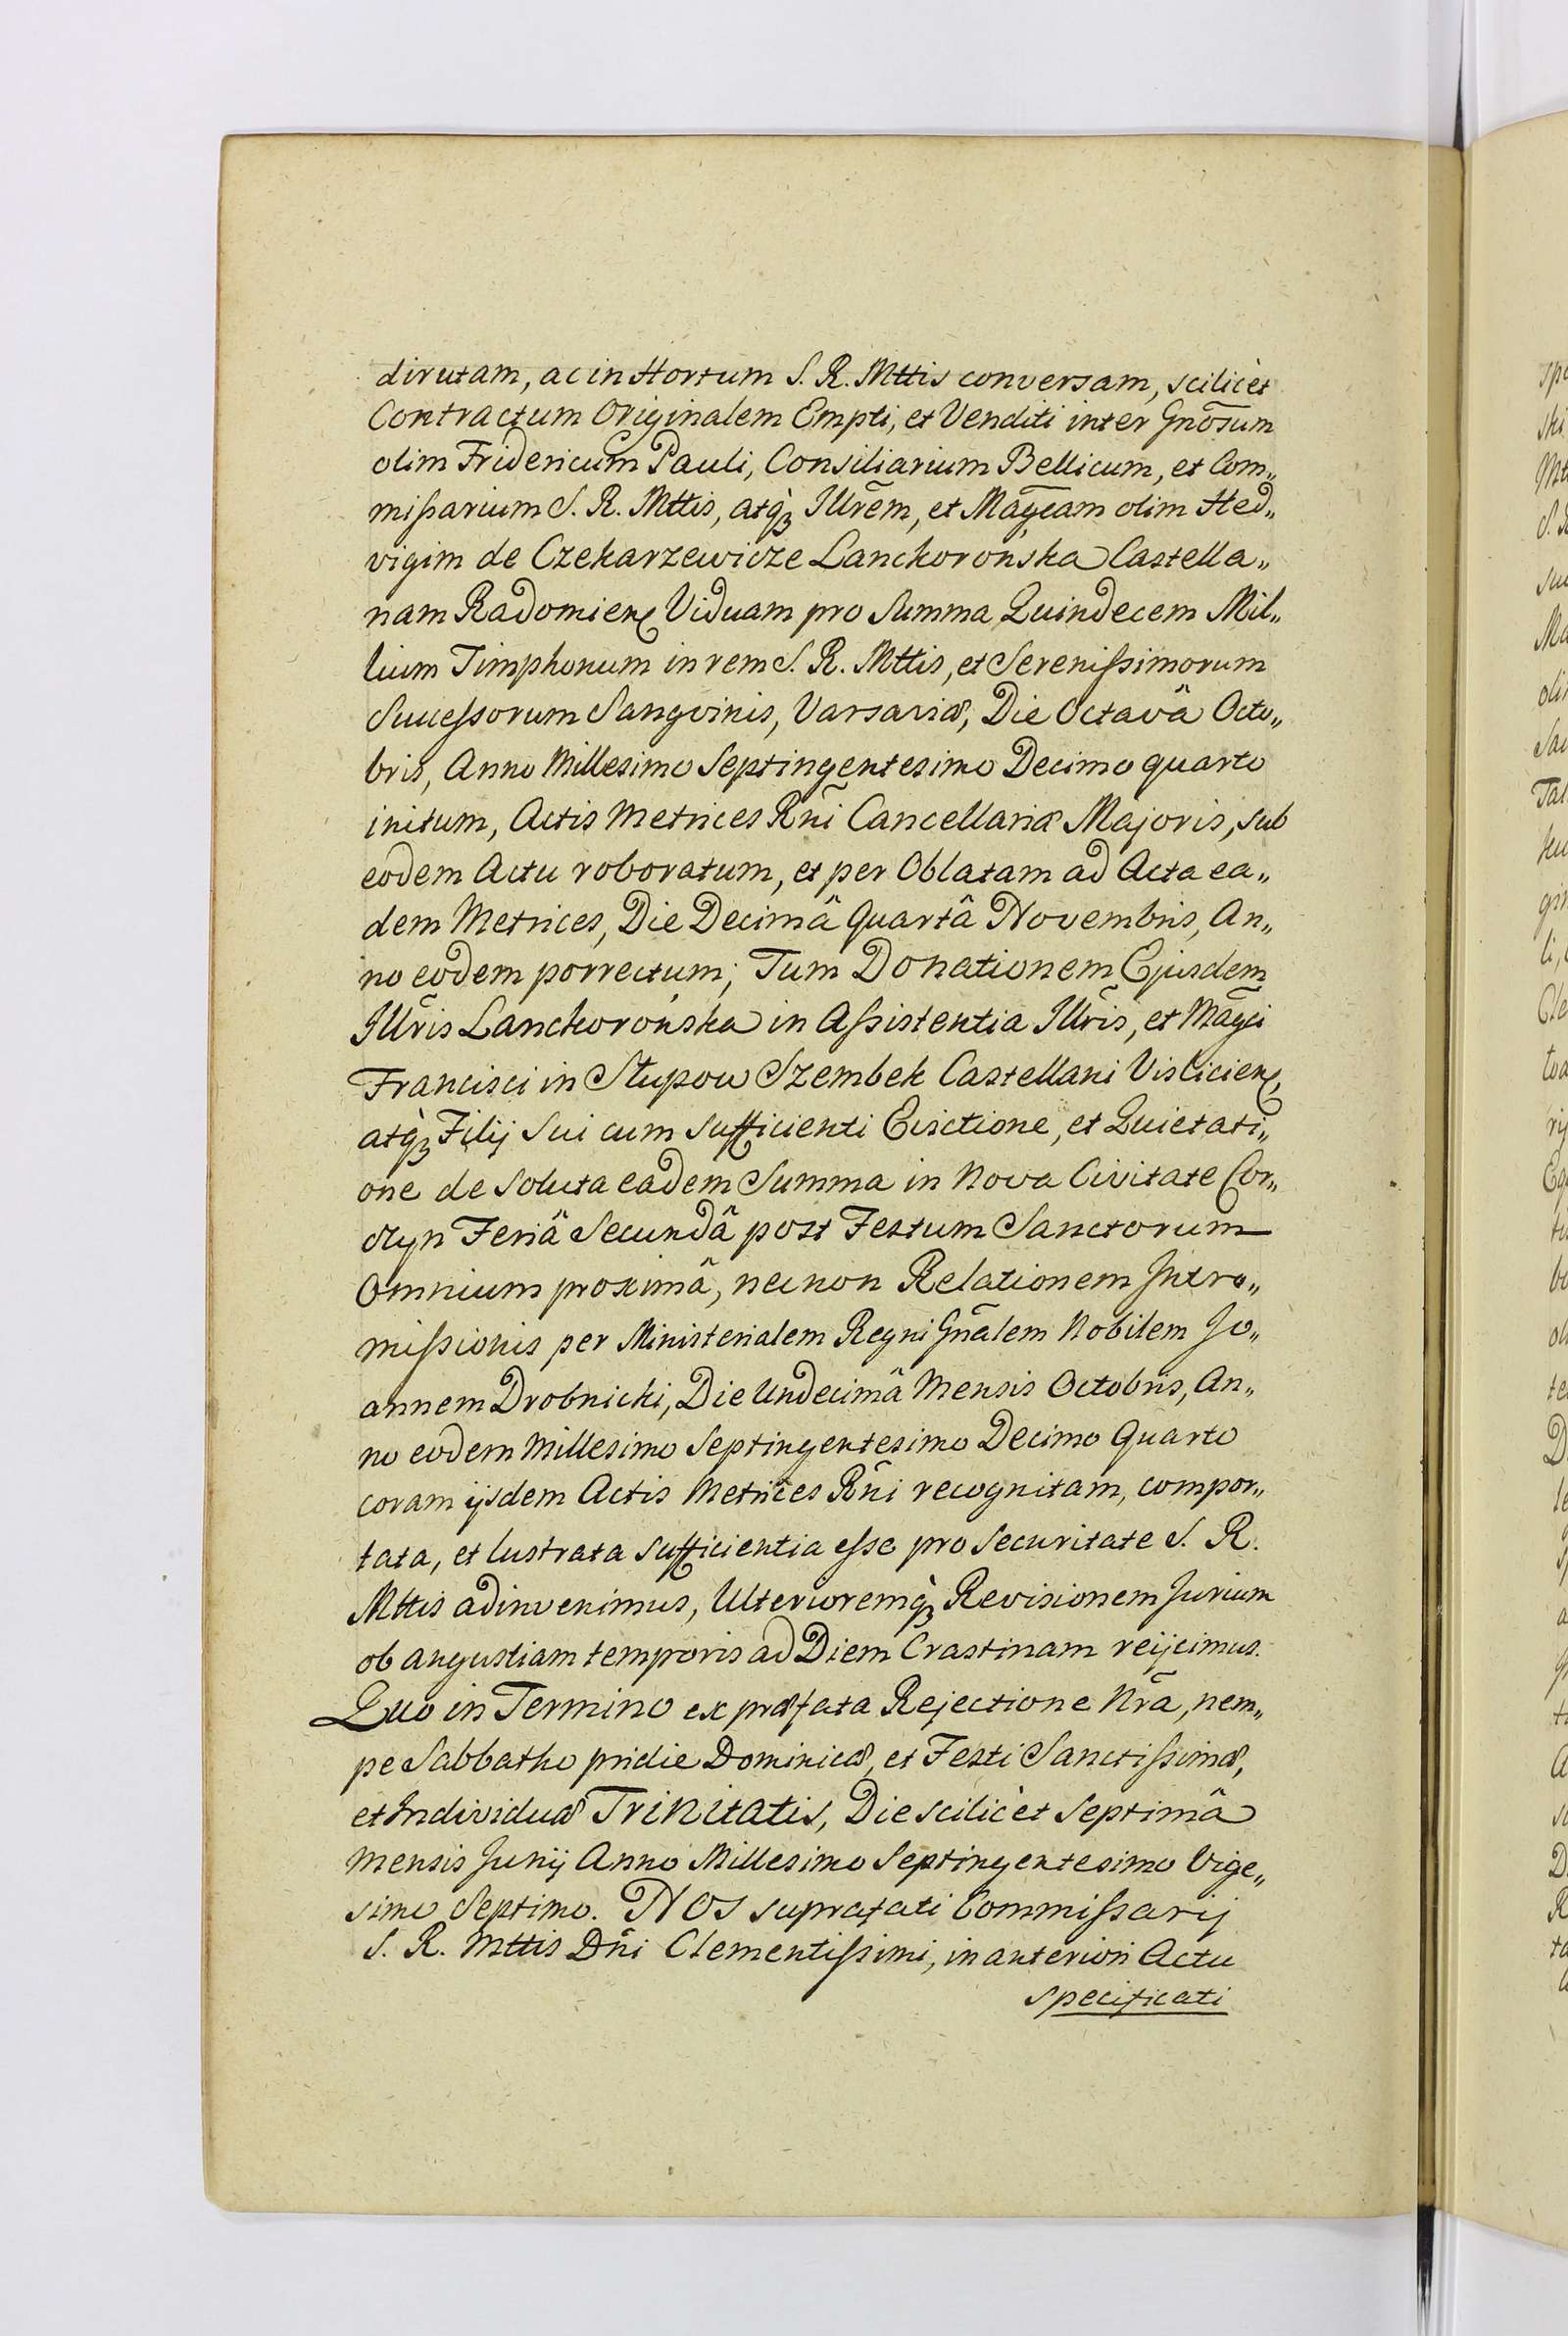 dirutam, ac in Hortum S. R. Mttis conversam, scilicèt
Contractum Originalem Empti, et Venditi inter Gnõsum
olim Fridericum Pauli, Consiliarium Bellicum, et Com„
miſsarium S. R. Mttis, atq̀ꝫ Illrẽm, et Magc̃am olim Hed„
vigim de Czekarzewicze Lanckorońska Castella„
nam Radomien̄ Viduam pro Summa Quindecem Mil„
lium Timphonum in rem S. R. Mttis, et Sereniſsimorum
Succeſsorum Sangvinis, Varsaviæ, Die Octavâ Octo„
bris, Anno Millesimo Septingentesimo Decimo quarto
initum, Actis Metrices Rñi Cancellariæ Majoris, sub
eodem Actu roboratum, et per Oblatam ad Acta ea„
dem Metrices, Die Decimâ Quartâ Novembris, An„
no eodem porrectum; Tum Donationem Ejusdem
Illr̃is Lanckorońska in Aſsistentia Illr̃is, et Mãgci
Francisci in Słupow Szembek Castellani Vislicien̄,
atq̀ꝫ Filij Sui cum sufficienti Evictione, et Quietati„
one de soluta eadem Summa in Nova Civitate Cor„
czyn Feriâ Secundâ post Festum Sanctorum
Omnium proximâ, necnon Relationem Intro„
miſsionis per Ministerialem Regni Gnãlem Nobilem Jo„
annem Drobnicki, Die Undecimâ Mensis Octobris, An„
no eodem Millesimo Septingentesimo Decimo Quarto
coram ijsdem Actis Metrices Rñi recognitam, compor„
tata, et lustrata sufficientia eſse pro securitate S. R.
Mttis adinvenimus, Ulterioremq̀ꝫ Revisionem Jurium
ob angustiam temporis ad Diem Crastinam reijcimus.
Quo in Termino ex præfata Rejectione Nrã, nem„
pe Sabbatho pridie Dominicæ, et Festi Sanctiſsimæ,
et Individuæ TRINITATIS, Die scilicèt Septimâ
Mensis Junij Anno Millesimo Septingentesimo Vige„
simo Septimo. NOS suprafati Commiſsarij
S. R. Mttis Dñi Clementiſsimi, in anteriori Actu
specificati